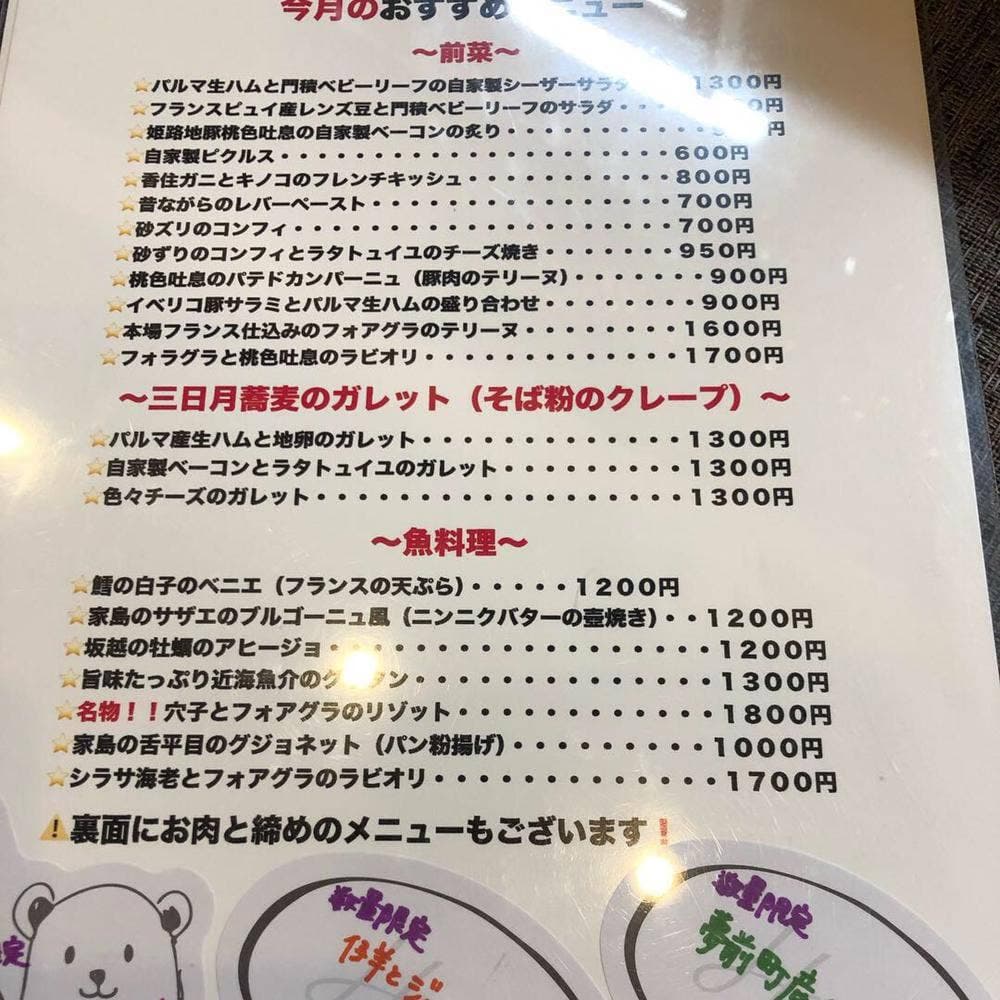 今月のおすすめメニュー
〜前菜〜
⭐パルマ生ハムと門積ベビーリーフの自家製シーザーサラダ 1300円
⭐フランスピュイ産レンズ豆と門積ベビーリーフのサラダ・・ 円
⭐姫路地豚桃色吐息の自家製ベーコンの炙り・・・・・・・・・ 円
⭐自家製ピクルス・・・・・・・・・・・・・・・・・・・・600円
⭐香住ガニとキノコのフレンチキッシュ・・・・・・・・・・800円
⭐昔ながらのレバーペースト・・・・・・・・・・・・・・・700円
⭐砂ズリのコンフィ・・・・・・・・・・・・・・・・・・・700円
⭐砂ずりのコンフィとラタトゥイユのチーズ焼き・・・・・・950円
⭐桃色吐息のパテドカンパーニュ（豚肉のテリーヌ）・・・・・・・900円
⭐イベリコ豚サラミとパルマ生ハムの盛り合わせ・・・・・・・900円
⭐本場フランス仕込みのフォアグラのテリーヌ・・・・・・・1600円
⭐フォラグラと桃色吐息のラビオリ・・・・・・・・・・・・1700円
〜三日月蕎麦のガレット（そば粉のクレープ）〜
⭐パルマ産生ハムと地卵のガレット・・・・・・・・・・・・1300円
⭐自家製ベーコンとラタトュイユのガレット・・・・・・・・1300円
⭐色々チーズのガレット・・・・・・・・・・・・・・・・・1300円
〜魚料理〜
⭐鱈の白子のベニエ（フランスの天ぷら）・・・・・1200円
⭐家島のサザエのブルゴーニュ風（ニンニクバターの壺焼き）・・1200円
⭐坂越の牡蠣のアヒージョ・・・・・・・・・・・・・・・・1200円
⭐旨味たっぷり近海魚介のグラタン・・・・・・・・・・・・1300円
⭐名物！！穴子とフォアグラのリゾット・・・・・・・・・・・1800円
⭐家島の舌平目のグジョネット（パン粉揚げ）・・・・・・・・1000円
⭐シラサ海老とフォアグラのラビオリ・・・・・・・・・・・・1700円
⚠裏面にお肉と締めのメニューもございます
定
数量限定
仔羊とジ
数量限定
夢前町産